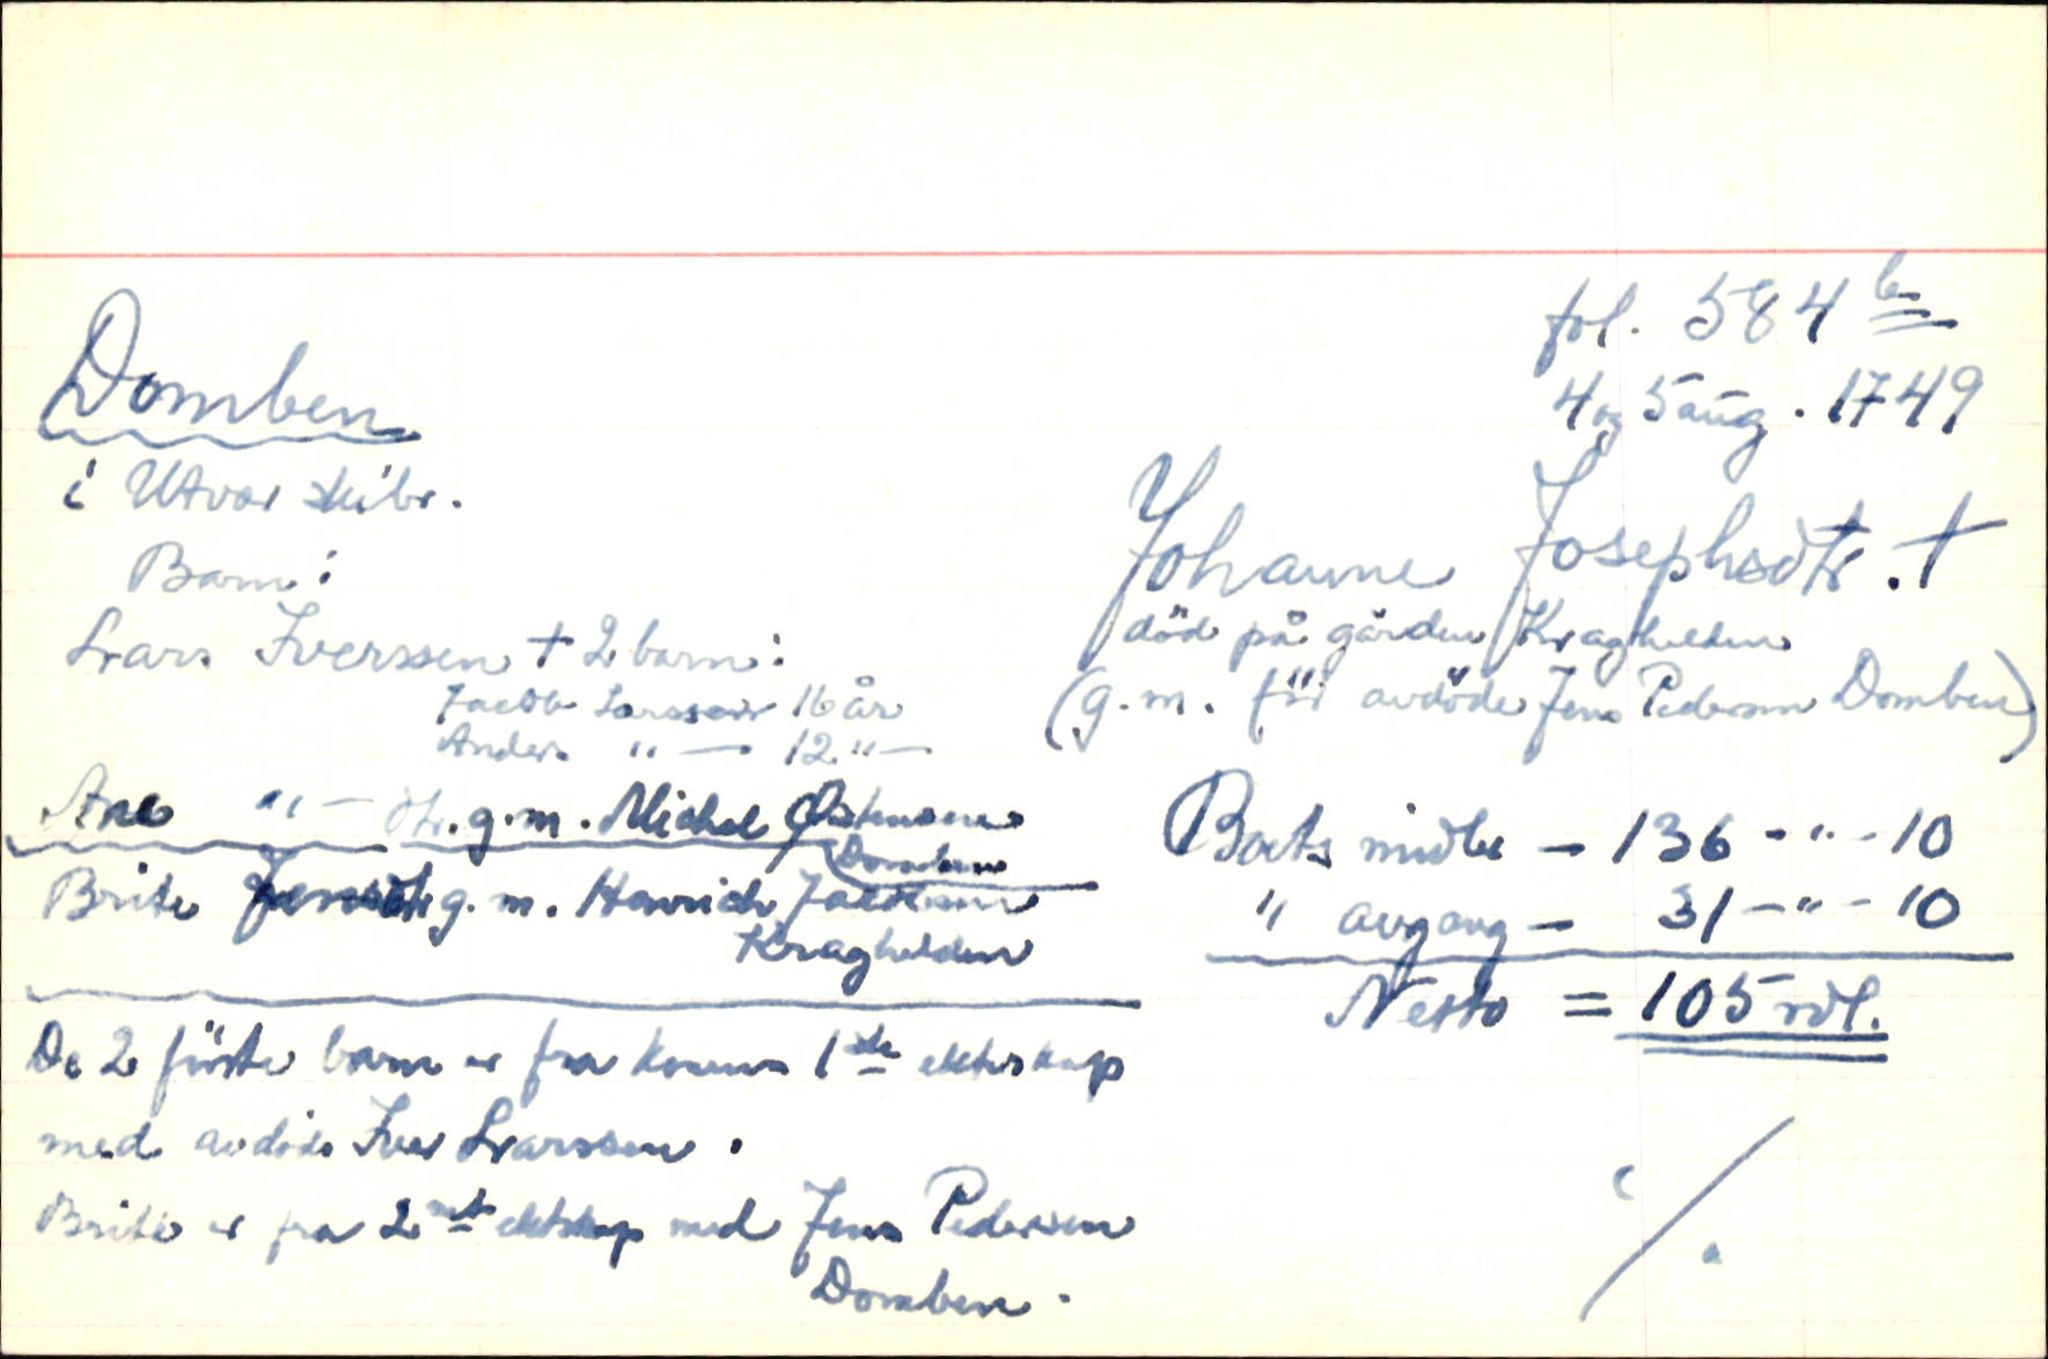 fol. 584 b
4 og 5 aug. 1749
Domben
i Utvær skibr.
Johanne Josephsdtr. †
død på gården Kraghelden
(g.m. før avdøde Jens Pedersen Domben)
Barn:
Lars Iverssen † 2 barn:
Jacob Larssen 16 år
Anders " — 12 " —
Ane " — dtr. g.m. Michel Østensen
Domben
Brite Jensdtr g.m. Henrich Jacobsen
Kraghelden
Boets midler — 136 - " - 10
" avgang — 31 — " - 10
Netto = 105 rdl.
De 2 første barn er fra konens 1ste ekteskap
med avdøde Iver Larssen.
Brite er fra 2net ekteskap med Jens Pedersen
Domben.